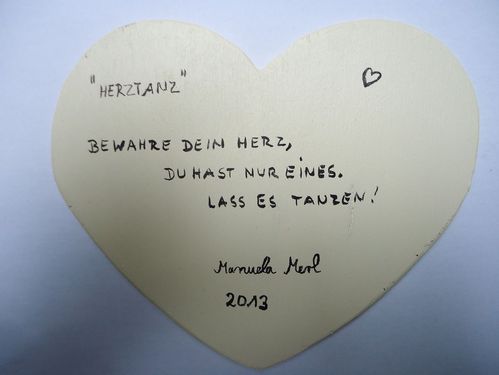 "HERZTANZ"
BEWAHRE DEIN HERZ,
DU HAST NUR EINES.
LASS ES TANZEN!
Manuela Merl
2013